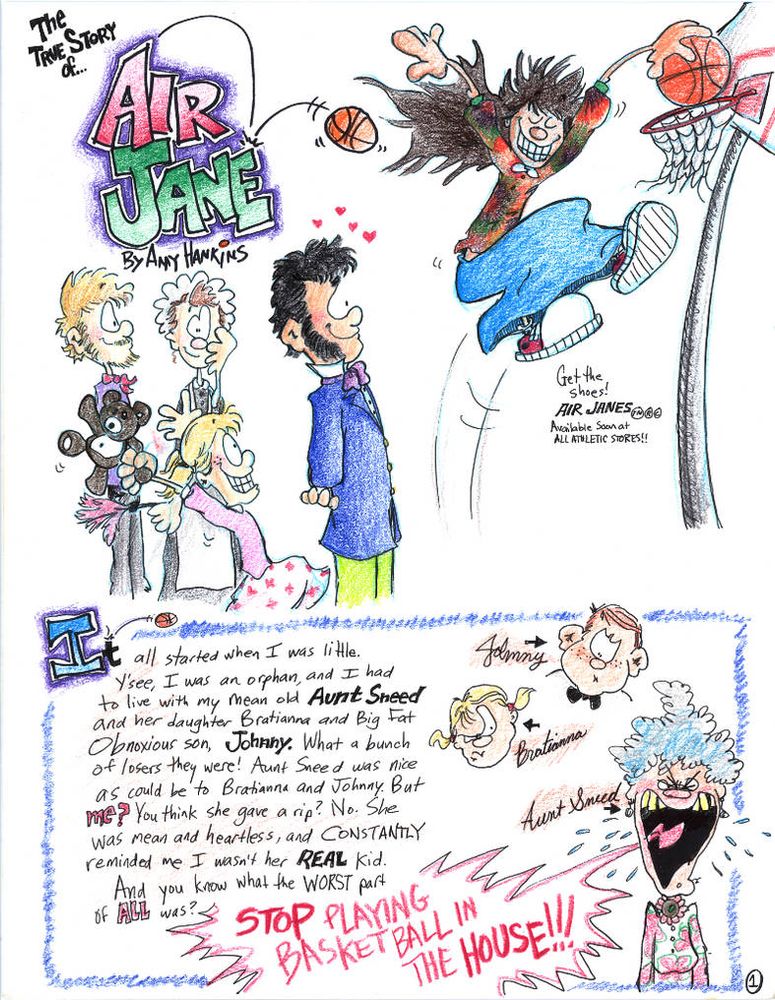 The
TRUE STORY
of...
AIR
JANE
By AMY HANKINS
Get the
shoes!
AIR JANES TM ® ©
Available Soon at
ALL ATHLETIC STORES!!
It all started when I was little.
Y'see, I was an orphan, and I had
to live with my mean old Aunt Sneed
and her daughter Bratianna and Big Fat
Obnoxious son, Johnny. What a bunch
of losers they were! Aunt Sneed was nice
as could be to Bratianna and Johnny. But
me? You think she gave a rip? No. She
was mean and heartless, and CONSTANTLY
reminded me I wasn't her REAL kid.
And you know what the WORST part
of ALL was?
Johnny
Bratianna
Aunt Sneed
STOP PLAYING
BASKETBALL IN
THE HOUSE!!!
1